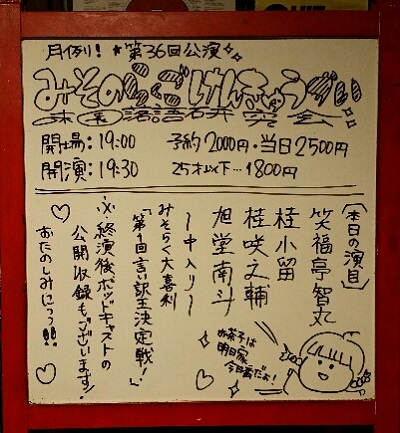 月例！ 第36回公演
みそのらくごけんきゅうかい
味園落語研究会
開場：19:00 予約2000円・当日2500円
開演：19:30 25才以下…1800円
〔本日の演目〕
笑福亭智丸
桂小留
桂咲之輔
旭堂南斗
〜中入り〜
みそらく大喜利
「第1回言い訳王決定戦！」
※終演後ポッドキャストの
公開収録もございます！
おたのしみにっっ!!
お茶子は
明日家
今日画だよ！